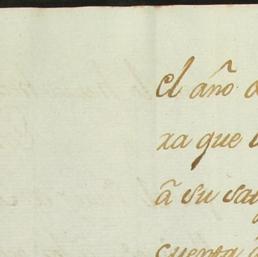 el año
xa que
â su
cuenta